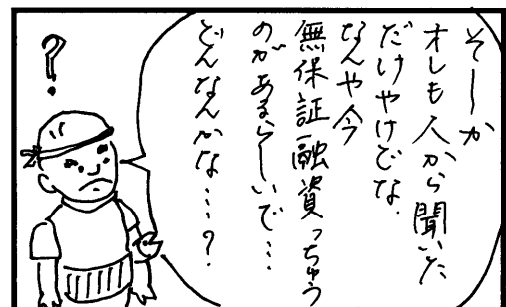 そーか
オレも人から聞いた
だけやけどな.
なんや今
無保証融資っちゅう
のがあるらしいで…
どんなんかな…?
?